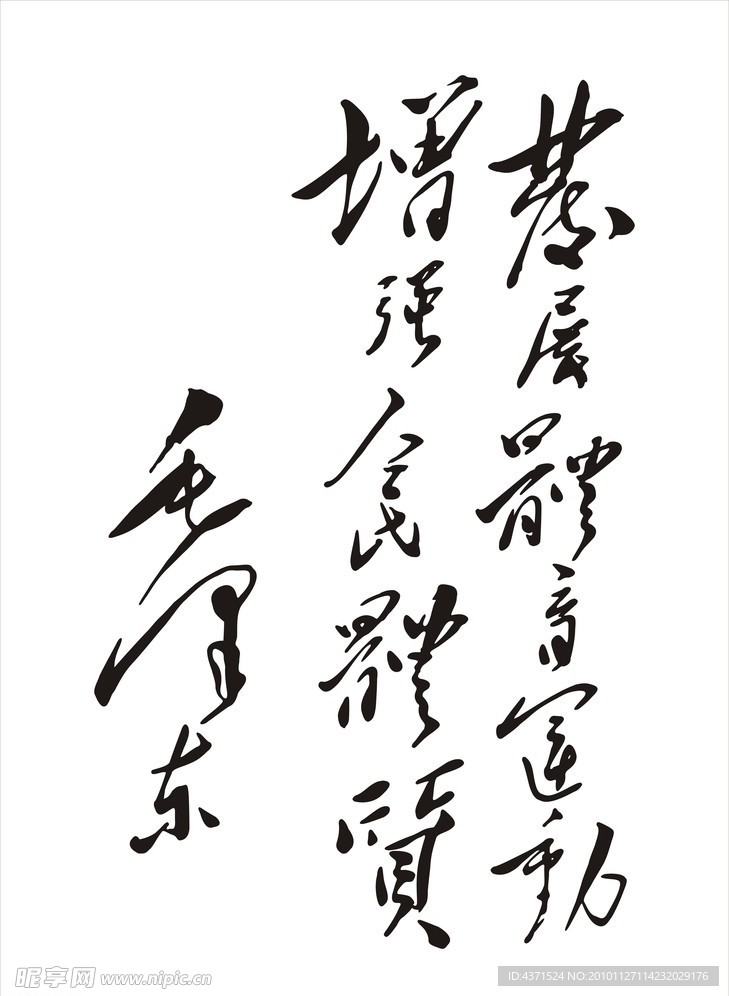 發展體育運動
增強人民體質
毛澤东
昵享网 www.nipic.cn
ID:4371524 NO:20101127114232029176